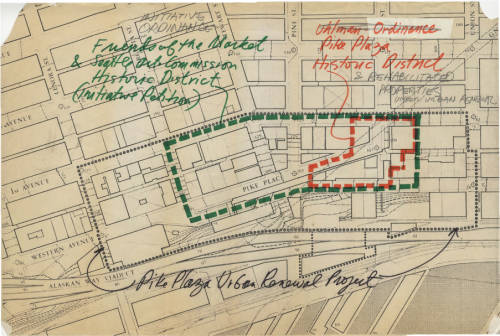 INITIATIVE
ORDINANCE
Friends of the Market
& Seattle Arts Commission
Historic District
(Initiative Petition)
Uhlman Ordinance
Pike Plaza
Historic District
& REHABILITATED
PROPERTIES
UNDER URBAN RENEWAL
PINE ST
LENORA ST
AVENUE
1st AVENUE
PIKE PLACE
WESTERN AVENUE
ALASKAN WAY VIADUCT
Pike Plaza Urban Renewal Project